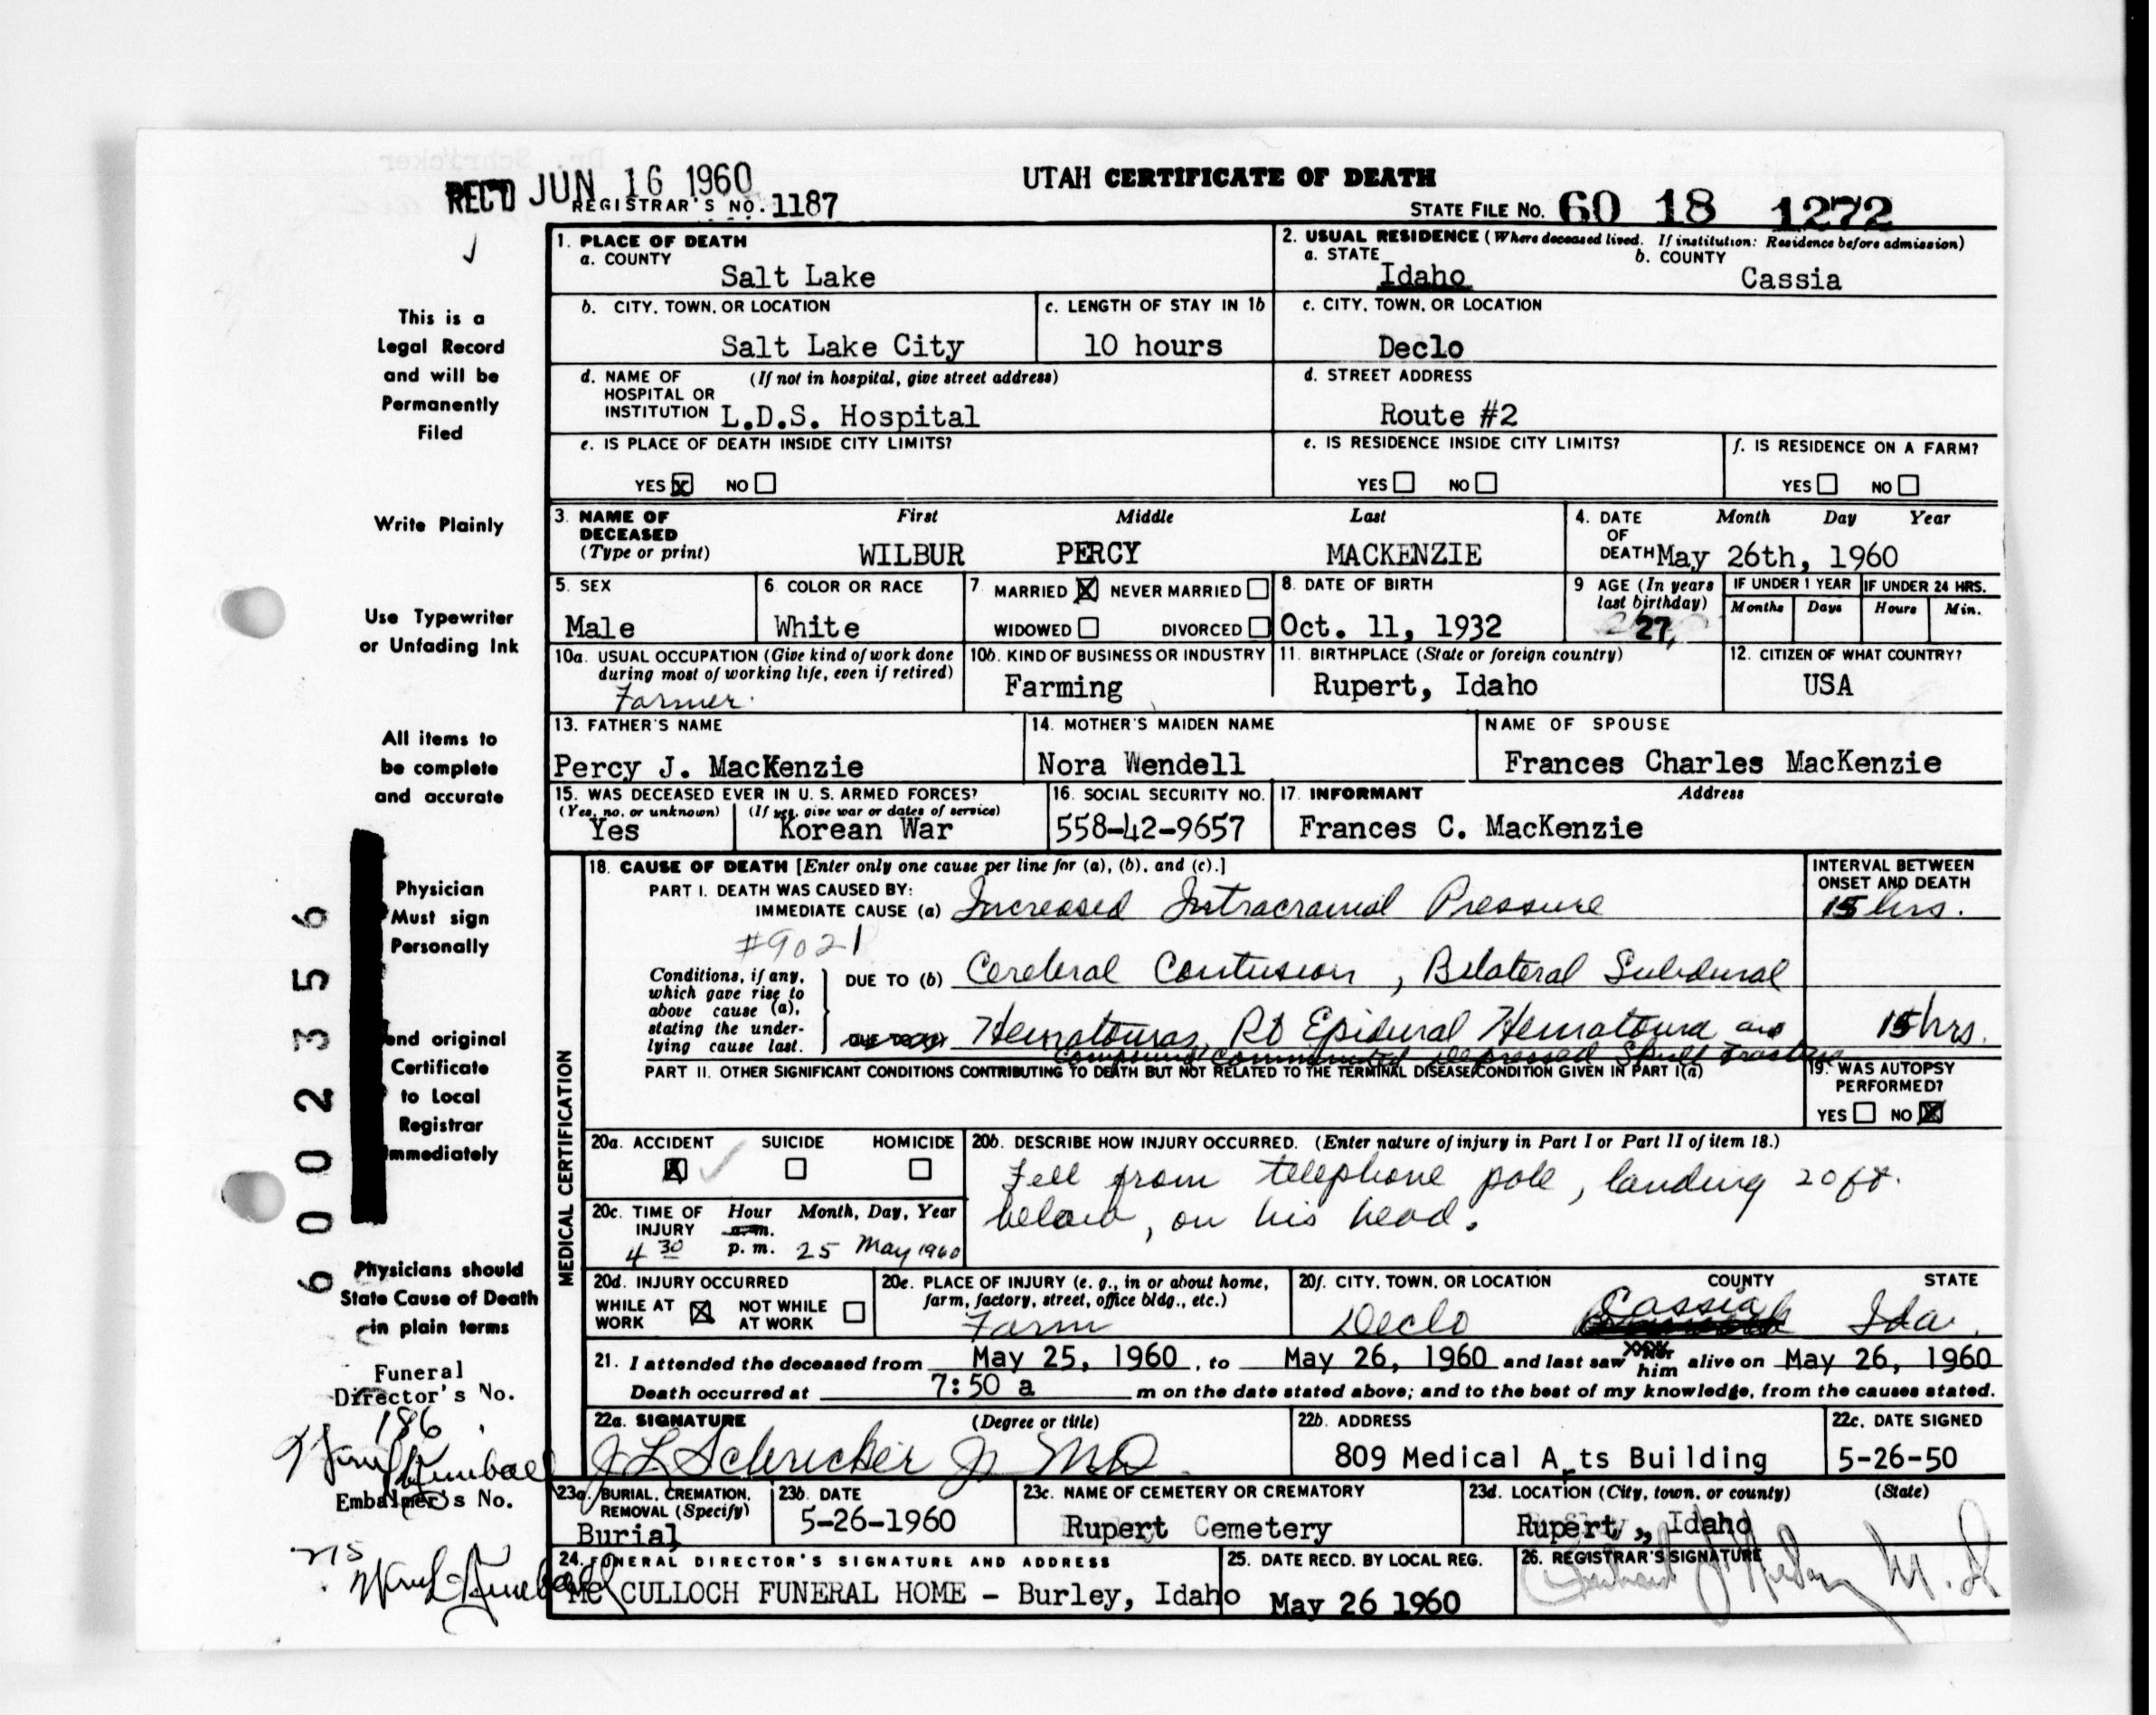 REC'D JUN 16 1960
REGISTRAR'S NO. 1187
UTAH CERTIFICATE OF DEATH
STATE FILE NO. 60 18 1272
1. PLACE OF DEATH
a. COUNTY
Salt Lake
2. USUAL RESIDENCE (Where deceased lived. If institution: Residence before admission)
a. STATE Idaho
b. COUNTY Cassia
b. CITY, TOWN, OR LOCATION
Salt Lake City
c. LENGTH OF STAY IN 1b
10 hours
c. CITY, TOWN, OR LOCATION
Declo
d. NAME OF HOSPITAL OR INSTITUTION (If not in hospital, give street address)
L.D.S. Hospital
d. STREET ADDRESS
Route #2
e. IS PLACE OF DEATH INSIDE CITY LIMITS?
YES X NO
e. IS RESIDENCE INSIDE CITY LIMITS?
YES NO
f. IS RESIDENCE ON A FARM?
YES NO
3. NAME OF DECEASED (Type or print)
First Middle Last
WILBUR PERCY MACKENZIE
4. DATE OF DEATH
Month Day Year
May 26th, 1960
5. SEX
Male
6. COLOR OR RACE
White
7. MARRIED X NEVER MARRIED
WIDOWED DIVORCED
8. DATE OF BIRTH
Oct. 11, 1932
9 AGE (In years last birthday)
27
IF UNDER 1 YEAR
Months Days
IF UNDER 24 HRS.
Hours Min.
10a. USUAL OCCUPATION (Give kind of work done during most of working life, even if retired)
Farmer
10b. KIND OF BUSINESS OR INDUSTRY
Farming
11. BIRTHPLACE (State or foreign country)
Rupert, Idaho
12. CITIZEN OF WHAT COUNTRY?
USA
13. FATHER'S NAME
Percy J. MacKenzie
14. MOTHER'S MAIDEN NAME
Nora Wendell
NAME OF SPOUSE
Frances Charles MacKenzie
15. WAS DECEASED EVER IN U. S. ARMED FORCES?
(Yes, no, or unknown) (If yes, give war or dates of service)
Yes Korean War
16. SOCIAL SECURITY NO.
558-42-9657
17. INFORMANT Address
Frances C. MacKenzie
MEDICAL CERTIFICATION
18. CAUSE OF DEATH [Enter only one cause per line for (a), (b), and (c).]
INTERVAL BETWEEN ONSET AND DEATH
PART I. DEATH WAS CAUSED BY:
IMMEDIATE CAUSE (a) Increased Intracranial Pressure
15 hrs.
#9021
Conditions, if any, which gave rise to above cause (a), stating the underlying cause last.
DUE TO (b) Cerebral Contusion, Bilateral Subdural
DUE TO (c) Hematomas, Rt Epidural Hematoma and
15 hrs.
Compound Comminuted Depressed Skull Fracture
PART II. OTHER SIGNIFICANT CONDITIONS CONTRIBUTING TO DEATH BUT NOT RELATED TO THE TERMINAL DISEASE CONDITION GIVEN IN PART I(a)
19. WAS AUTOPSY PERFORMED?
YES NO X
20a. ACCIDENT SUICIDE HOMICIDE
X
20b. DESCRIBE HOW INJURY OCCURRED. (Enter nature of injury in Part I or Part II of item 18.)
Fell from telephone pole, landing 20 ft.
below, on his head.
20c. TIME OF INJURY
Hour Month, Day, Year
a. m.
4 30 p. m. 25 May 1960
20d. INJURY OCCURRED
WHILE AT WORK X NOT WHILE AT WORK
20e. PLACE OF INJURY (e. g., in or about home, farm, factory, street, office bldg., etc.)
Farm
20f. CITY, TOWN, OR LOCATION COUNTY STATE
Declo Cassia Ida.
21. I attended the deceased from May 25, 1960, to May 26, 1960 and last saw him alive on May 26, 1960
Death occurred at 7:50 a m on the date stated above; and to the best of my knowledge, from the causes stated.
22a. SIGNATURE (Degree or title)
J L Schricker Jr MD
22b. ADDRESS
809 Medical Arts Building
22c. DATE SIGNED
5-26-50
23a. BURIAL, CREMATION, REMOVAL (Specify)
Burial
23b. DATE
5-26-1960
23c. NAME OF CEMETERY OR CREMATORY
Rupert Cemetery
23d. LOCATION (City, town, or county) (State)
Rupert, Idaho
24. FUNERAL DIRECTOR'S SIGNATURE AND ADDRESS
Mc CULLOCH FUNERAL HOME - Burley, Idaho
25. DATE RECD. BY LOCAL REG.
May 26 1960
26. REGISTRAR'S SIGNATURE
M.D.
This is a
Legal Record
and will be
Permanently
Filed
Write Plainly
Use Typewriter
or Unfading Ink
All items to
be complete
and accurate
Physician
Must sign
Personally
end original
Certificate
to Local
Registrar
mmediately
6002356
Physicians should
State Cause of Death
in plain terms
Funeral
Director's No.
186
Embalmer's No.